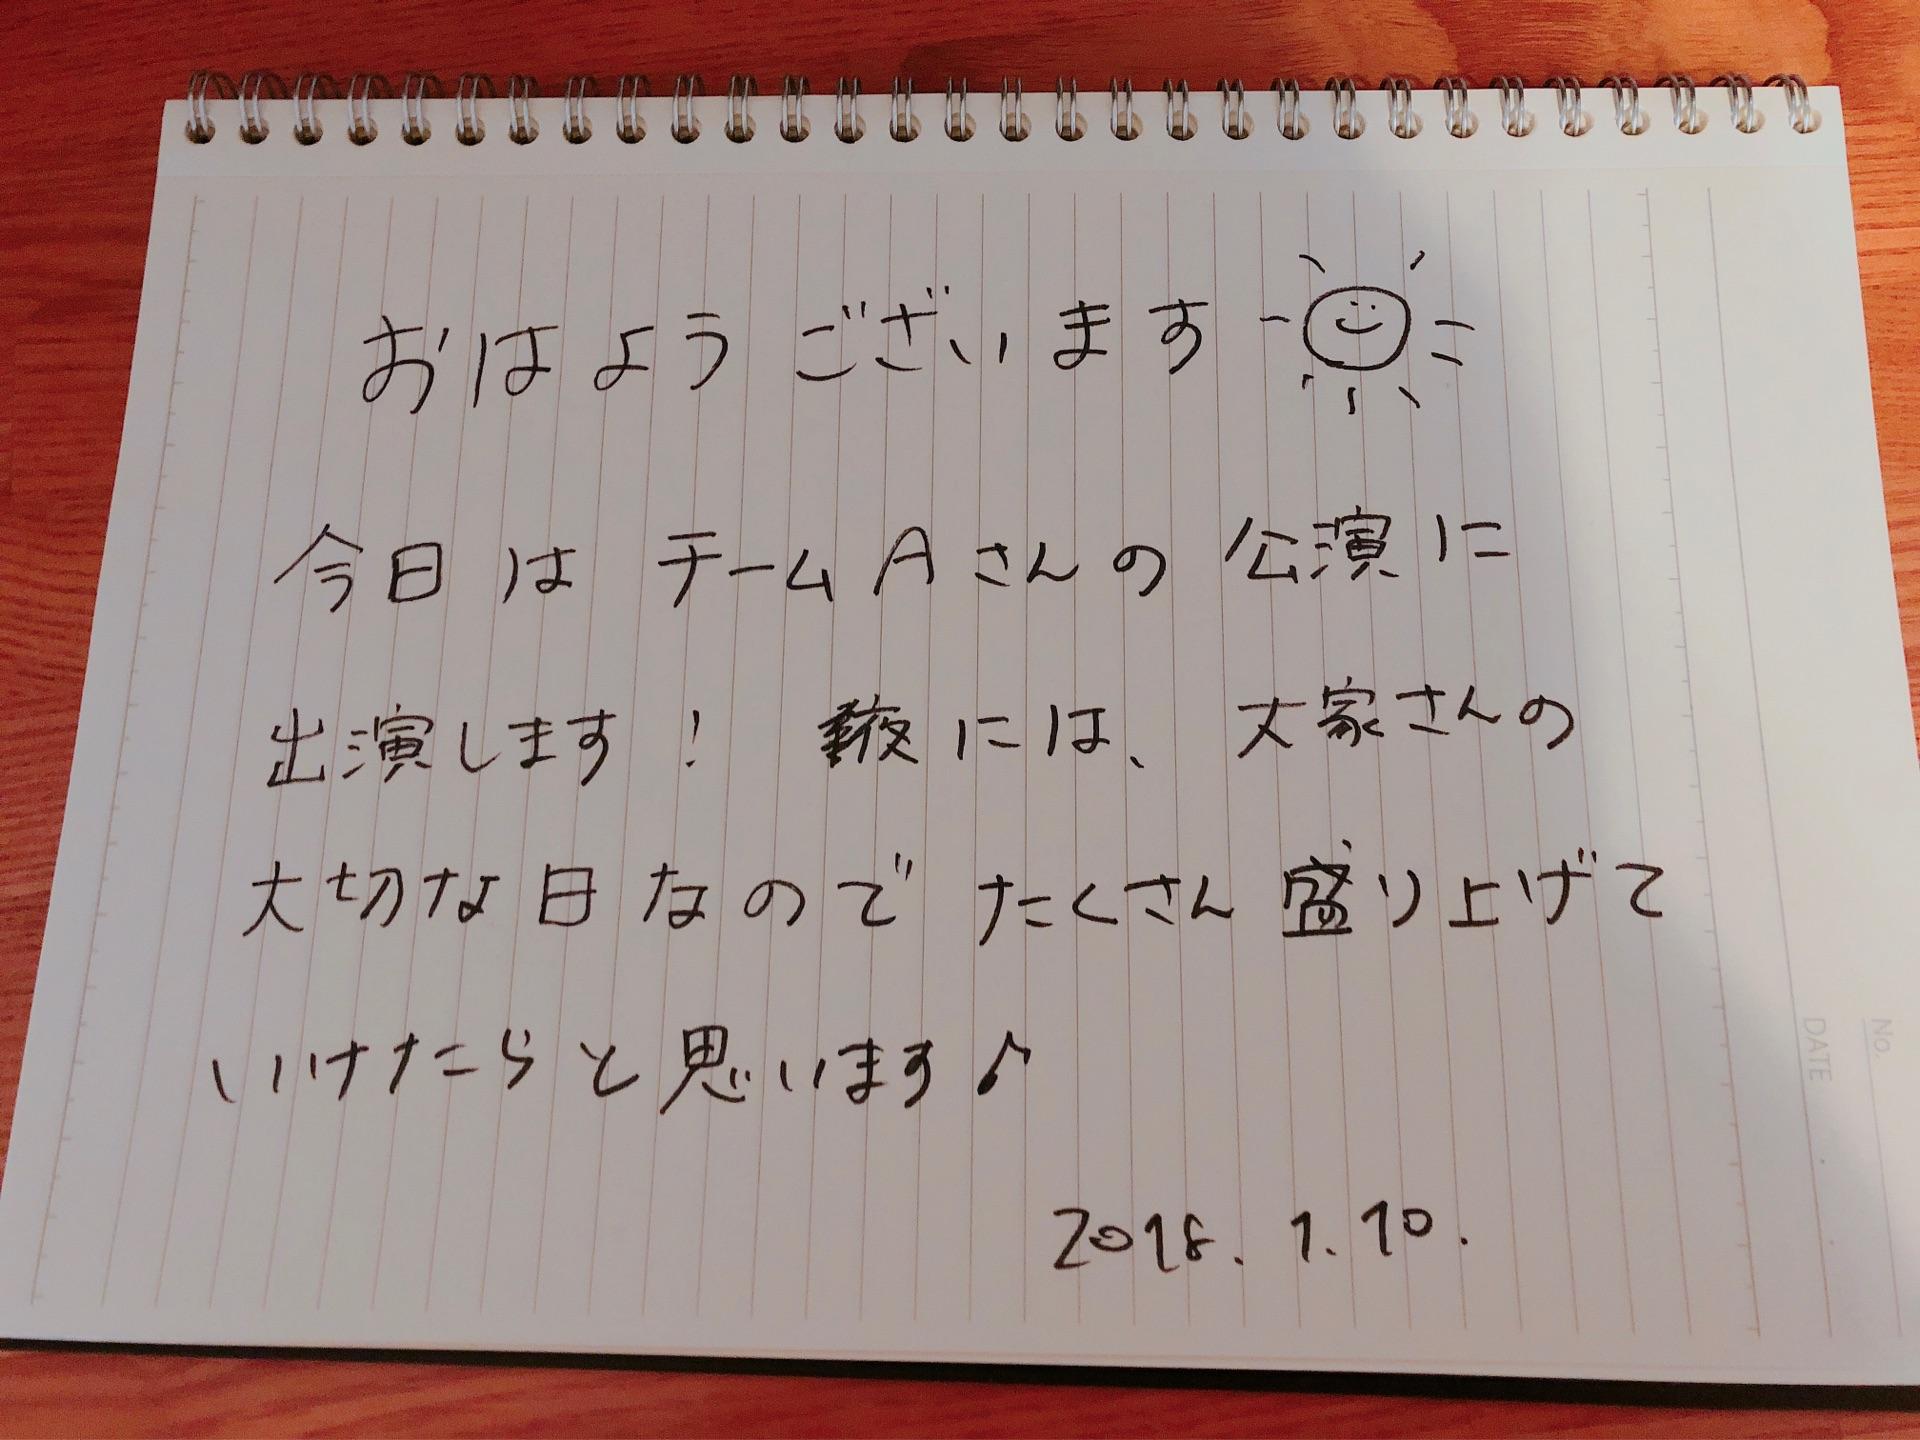 おはようございます
今日は チームAさんの 公演に
出演します! 夜には、大家さんの
大切な日なので たくさん盛り上げて
いけたらと思います♪
2018. 1. 10.
No.
DATE